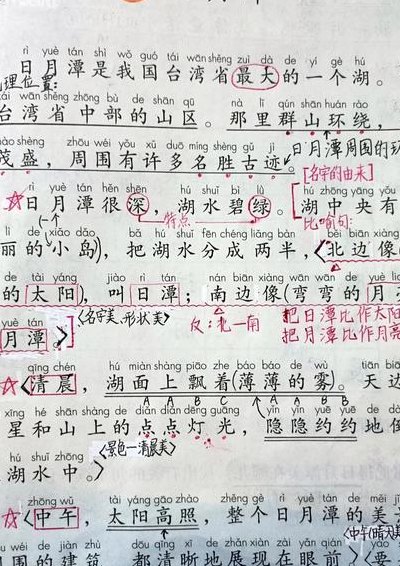 rì yuè tán shì wǒ guó tái wān shěng zuì dà de yí gè hú
日月潭是我国台湾省最大的一个湖。
理位置:
tái wān shěng zhōng bù de shān qū nà lǐ qún shān huán rào
台湾省中部的山区。那里群山环绕,
mào shèng zhōu wéi yǒu xǔ duō míng shèng gǔ jì
茂盛,周围有许多名胜古迹。
日月潭周围的环
[名字的由来]
rì yuè tán hěn shēn hú shuǐ bì lǜ hú zhōng yāng yǒu
☆日月潭很深,湖水碧绿。湖中央有
特点
比喻句:
lì de xiǎo dǎo bǎ hú shuǐ fēn chéng liǎng bàn běi biān xiàng
(一个)
丽的小岛),把湖水分成两半,<北边像
de tài yáng jiào rì tán nán biān xiàng wān wān de yuè
的太阳),叫日潭;南边像(弯弯的月
yuè tán
月潭。>
<名字美、形状美>
反:北—南
把日潭比作太阳
把月潭比作月亮
qīng chén hú miàn shàng piāo zhe báo báo de wù tiān biān
☆<清晨,湖面上飘着(薄薄的雾。天边
A A B C A B C
xīng hé shān shàng de diǎn diǎn dēng guāng yǐn yǐn yuē yuē de dào
星和山上的点点灯光,隐隐约约地倒
hú shuǐ zhōng
湖水中。>
<景色—清晨美>
zhōng wǔ tài yáng gāo zhào zhěng gè rì yuè tán de měi jǐng
☆<中午,太阳高照,整个日月潭的美
<中午(晴天)美
wéi de jiàn zhù dōu qīng xī de zhǎn xiàn zài yǎn qián yào
周围的建筑,都清晰地展现在眼前><要